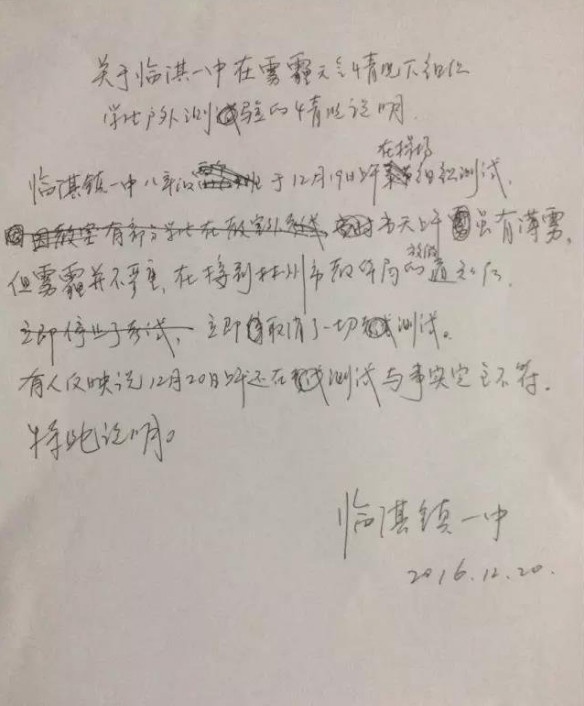 关于临淇一中在雾霾天气情况下组织
学生户外测试验的情况说明
临淇镇一中八年级于12月19日上午在操场组织测试,
当天上午虽有薄雾,
但雾霾并不严重,在接到林州市教体局的放假通知后,
立即停止了考试,立即取消了一切测试。
有人反映说12月20日上午还在测试与事实完全不符。
特此说明。
临淇镇一中
2016.12.20.